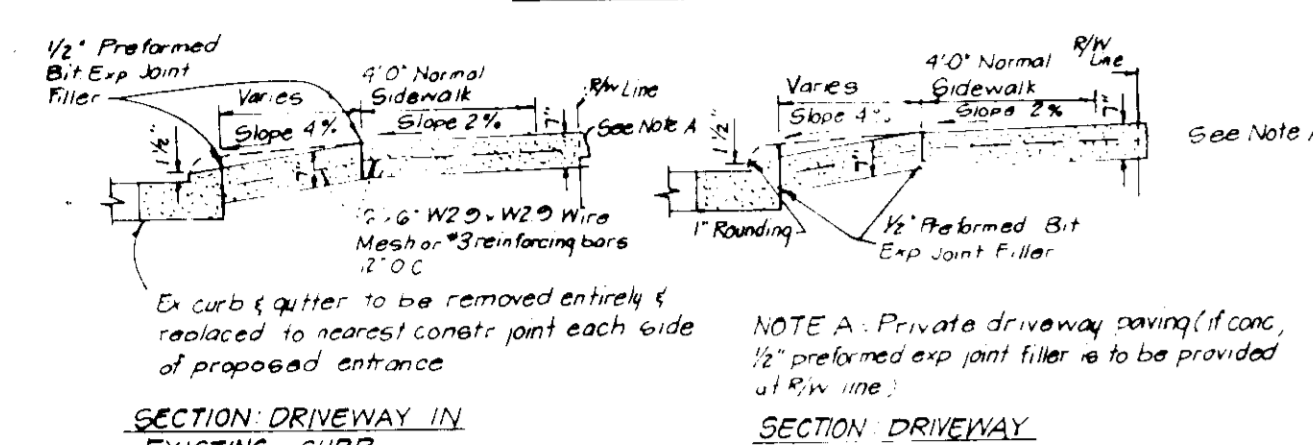 1/2" Preformed
Bit. Exp Joint
Filler
Varies
4'0" Normal
Sidewalk
R/W Line
Slope 4%
Slope 2%
7"
See Note A
1 1/2"
7"
6" W2.9 x W2.9 Wire
Mesh or #3 reinforcing bars
12" O C
Ex curb & gutter to be removed entirely &
replaced to nearest constr joint each side
of proposed entrance
SECTION: DRIVEWAY IN
EXISTING CURB
4'0" Normal
Sidewalk
R/W
Line
Varies
Slope 4%
Slope 2%
7"
See Note
1 1/2"
7"
1" Rounding
1/2" Preformed Bit
Exp Joint Filler
NOTE A: Private driveway paving (if conc,
1/2" preformed exp joint filler is to be provided
at R/W line)
SECTION: DRIVEWAY